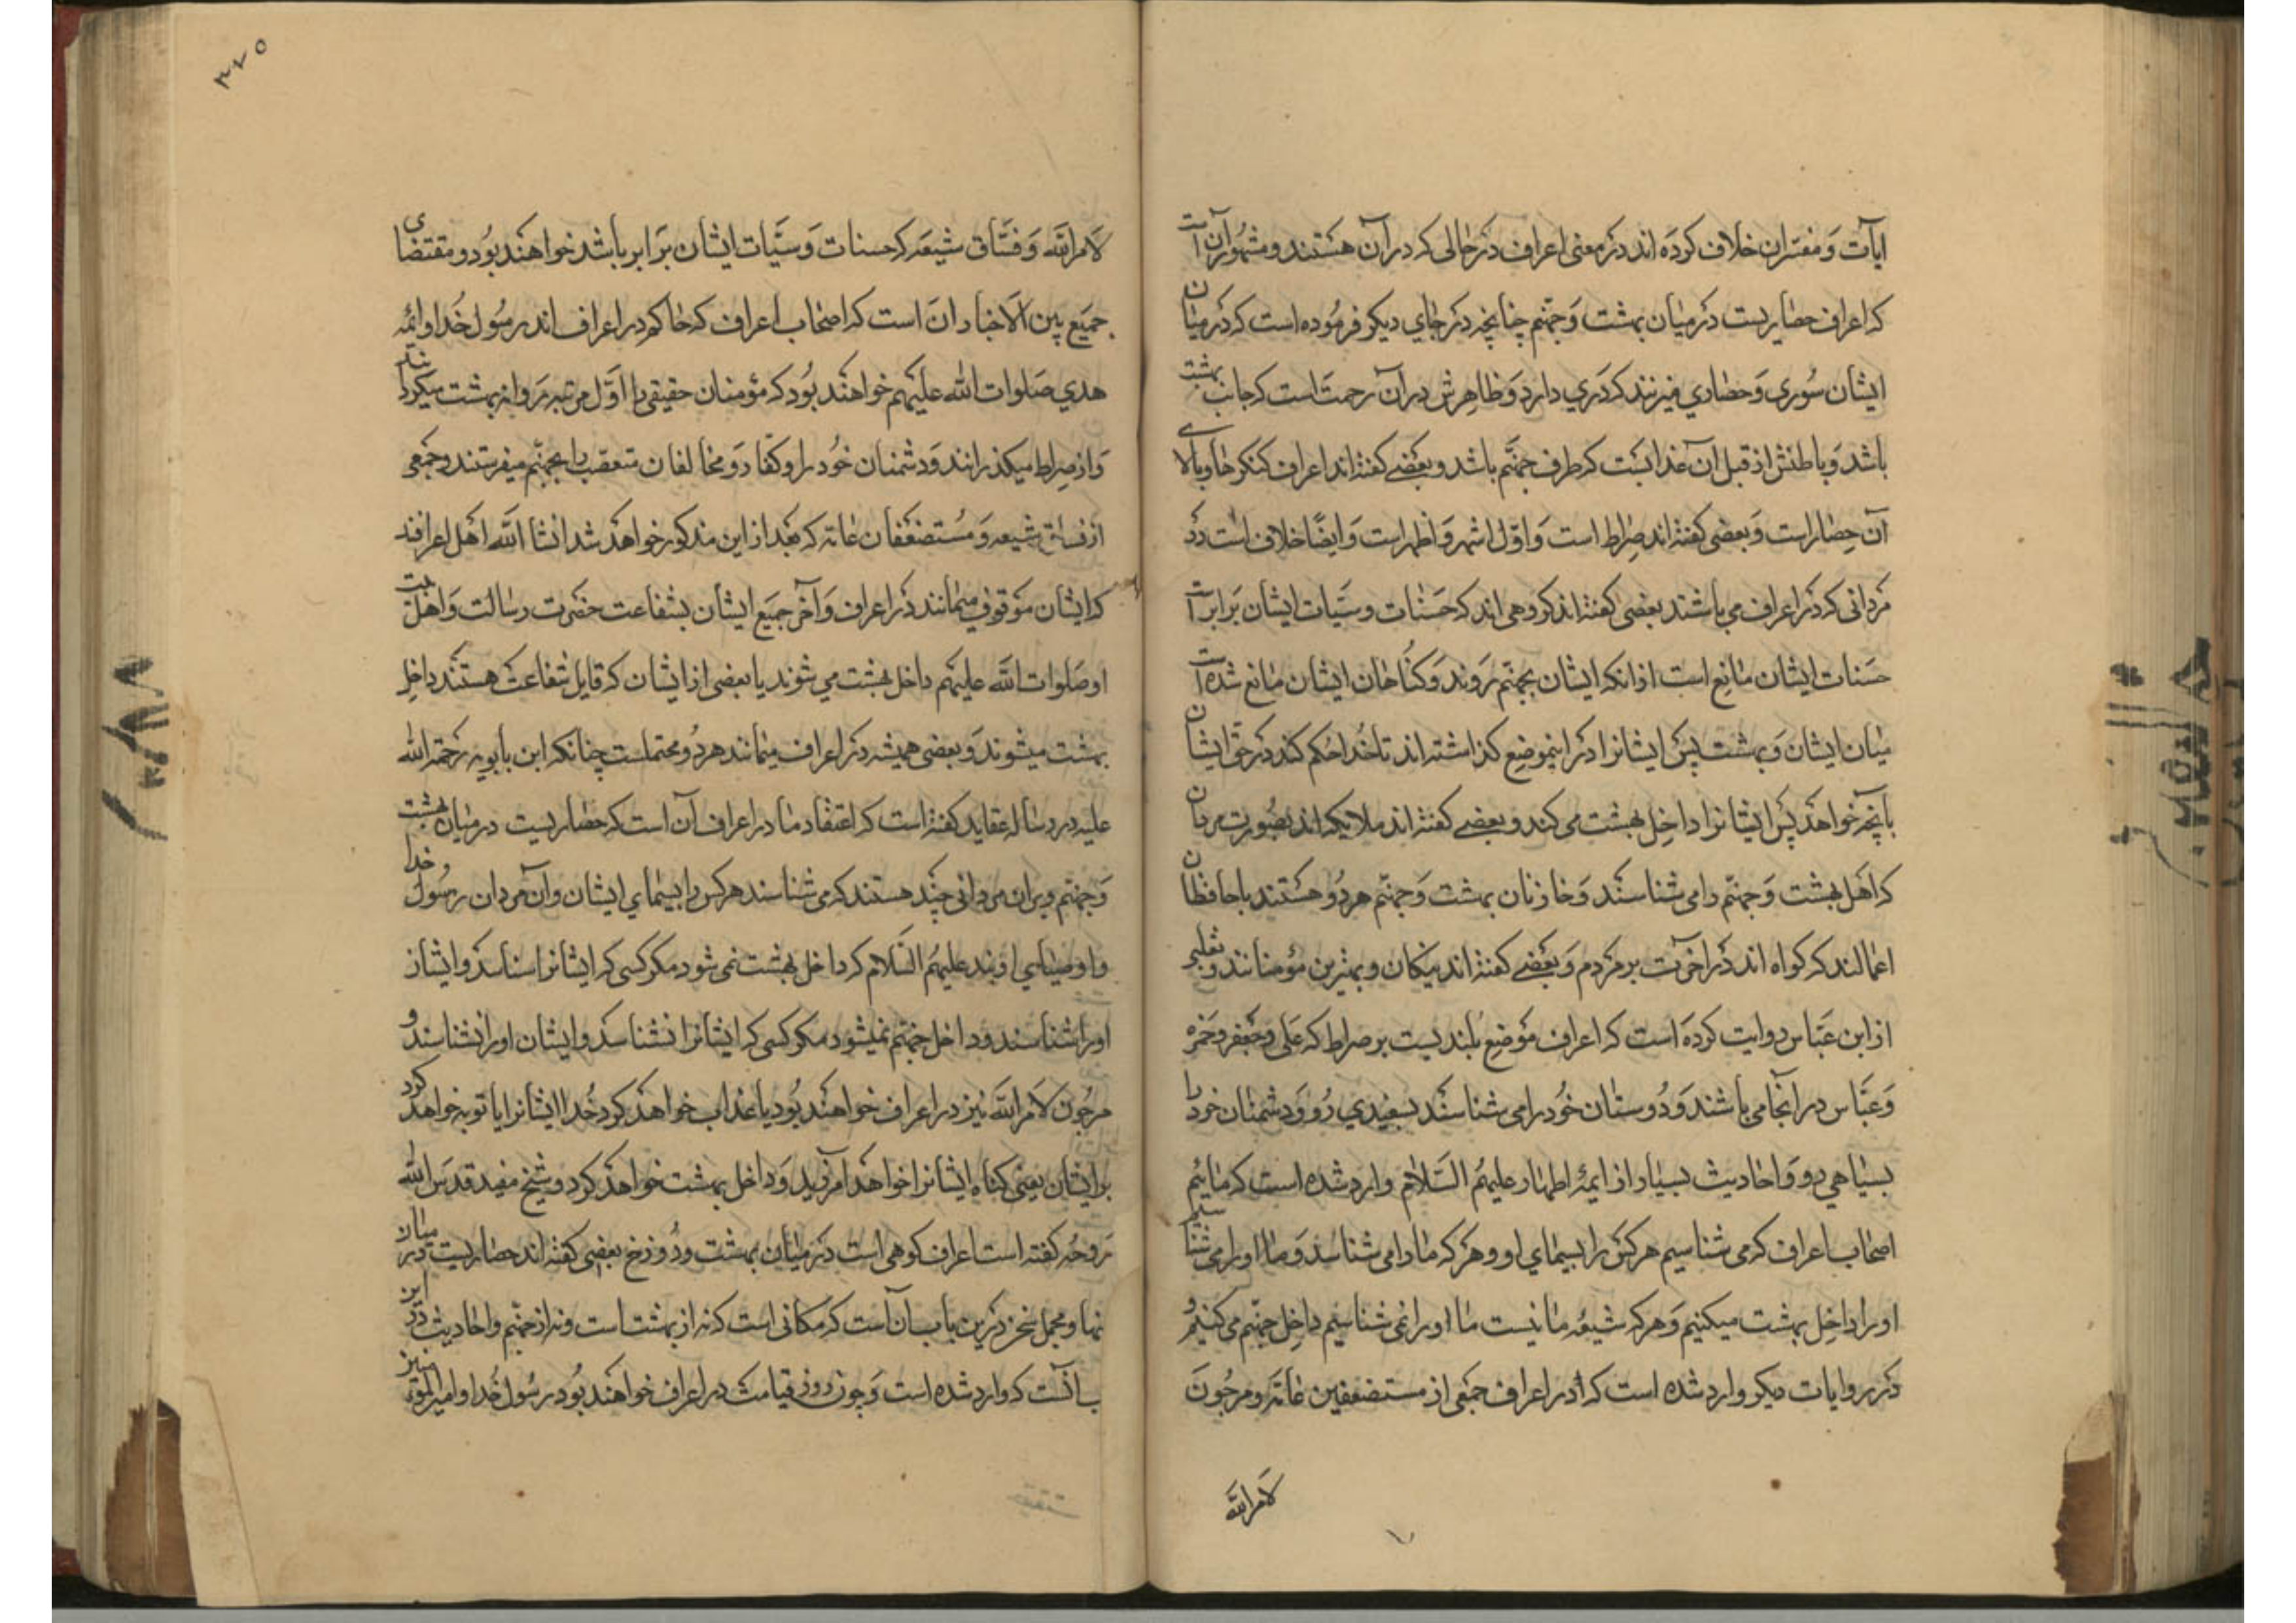 ایات و مفسران خلاف کرده اند در معنی اعراف در حالی که در آن هستند و مشهور آن است
که اعراف حصاریست در میان بهشت و جهنم چنانچه در جای دیکر فرموده است که در میان
ایشان سوری و حصاری میزنند که دری دارد و ظاهرش در آن رحمت است که جانب بهشت
باشد و باطنش از قبل آن عذابست که طرف جهنم باشد و بعضی کفته اند اعراف کنکرها و بالای
آن حصار است و بعضی کفته اند صراط است و اول اشهر و اظهر است و ایضا خلاف است در
مردانی که در اعراف می باشند بعضی کفته اند کروهی اند که حسنات و سیات ایشان برابر است
حسنات ایشان مانع است از انکه ایشان بجهنم روند و کناهان ایشان مانع شده است
میان ایشان و بهشت پس ایشانرا در اینموضع کذاشته اند تا خدا حکم کند در حق ایشان
بانچه خواهد پس ایشانرا داخل بهشت می کند و بعضی کفته اند ملایکه اند بصورت مردان
که اهل بهشت و جهنم را می شناسند و خازنان بهشت و جهنم هر دو هستند یا حافظان
اعمالند که کواه اند در آخرت بر مردم و بعضی کفته اند نیکان و بهترین مؤمنانند و ثعلبی
از ابن عباس روایت کرده است که اعراف موضع بلندیست بر صراط که علی و جعفر و حمزه
و عباس در آنجا می باشند و دوستان خود را می شناسند بسفیدی رو و دشمنان خود را
بسیاهی رو و احادیث بسیار از ایمهٔ اطهار علیهم السلام وارد شده است که ماییم
اصحاب اعراف که می شناسیم هر کس را بسیمای او و هر که ما را می شناسد و ما او را می شناسیم
او را داخل بهشت میکنیم و هر که شیعهٔ ما نیست ما او را نمی شناسیم داخل جهنم می کنیم و
در روایات دیکر وارد شده است که در اعراف جمعی از مستضعفین عامه و مرجون
لامر الله
۳۷۵
لامر الله و فساق شیعه که حسنات و سیات ایشان برابر باشد خواهند بود و مقتضای
جمیع بین الاخبار ان است که اصحاب اعراف که حاکم در اعراف اند رسول خدا و ائمه
هدی صلوات الله علیهم خواهند بود که مؤمنان حقیقی را اول مرتبه روانه بهشت میکردانند
و از صراط میکذرانند و دشمنان خود را و کفار و مخالفان متعصب را بجهنم میفرستند و جمعی
از فساق شیعه و مستضعفان عامه که بعد از این مذکور خواهد شد انشا الله اهل اعرافند
که ایشان موقوف میمانند در اعراف و آخر جمیع ایشان بشفاعت حضرت رسالت و اهل بیت
او صلوات الله علیهم داخل بهشت می شوند یا بعضی از ایشان که قابل شفاعت هستند داخل
بهشت میشوند و بعضی همیشه در اعراف میمانند هر دو محتملست چنانکه ابن بابویه رحمة الله
علیه در رساله عقاید کفته است که اعتقاد ما در اعراف آن است که حصاریست در میان بهشت
و جهنم و بران مردانی چند هستند که می شناسند هر کس را بسیمای ایشان و آن مردان رسول خدا
و اوصیای اویند علیهم السلام که داخل بهشت نمی شود مکر کسی که ایشانرا شناسد و ایشان
او را شناسند و داخل جهنم نمیشود مکر کسی که ایشانرا نشناسد و ایشان او را نشناسند و
مرجون لامر الله نیز در اعراف خواهند بود یا عذاب خواهد کرد خدا ایشانرا یا توبه خواهد کرد
بر ایشان یعنی کناه ایشانرا خواهد امرزید و داخل بهشت خواهد کرد و شیخ مفید قدس الله
روحه کفته است اعراف کوهی است در میان بهشت و دوزخ بعضی کفته اند حصاریست در میان
و مجمل سخن درین باب آن است که مکانی است که نه از بهشت است و نه از جهنم و احادیث در این
باب وارد شده است و چون روز قیامت در اعراف خواهند بود رسول خدا و امیرالمؤمنین